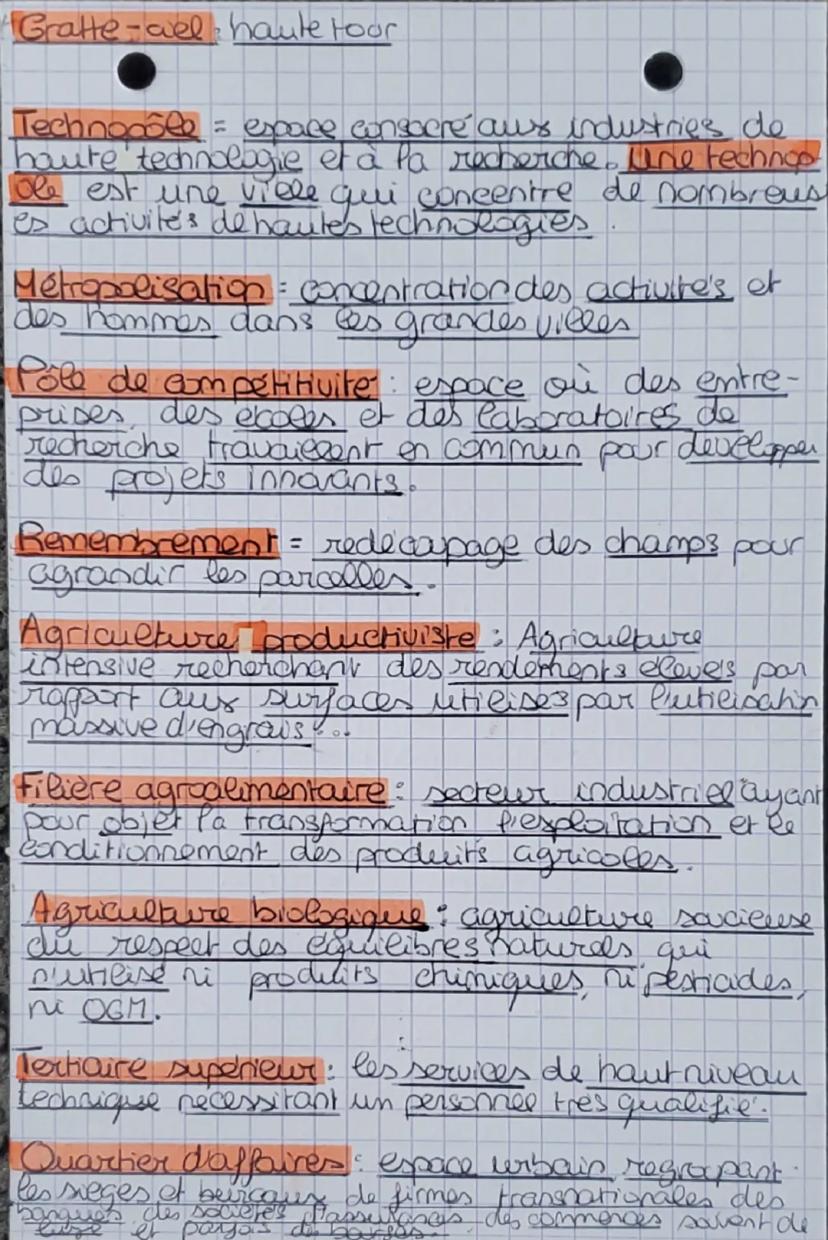 Gratte-ciel : haute tour
Technopôle = espace consacré aux industries de
haute technologie et à la recherche. Une technop
ole est une ville qui concentre de nombreus
es activités de hautes technologies.
Métropolisation : concentration des activités et
des hommes dans les grandes villes
Pôle de compétitivité : espace où des entre-
prises, des écoles et des laboratoires de
recherche travaillent en commun pour développer
des projets innovants.
Remembrement = redécapage des champs pour
agrandir les parcelles.
Agriculture productiviste : Agriculture
intensive recherchant des rendements élevés par
rapport aux surfaces utilisées par l'utilisation
massive d'engrais...
Filière agroalimentaire : secteur industriel ayant
pour objet la transformation l'exploitation et le
conditionnement des produits agricoles.
Agriculture biologique : agriculture soucieuse
du respect des équilibres naturels, qui
n'utilise ni produits chimiques, ni pesticides,
ni OGM.
Tertiaire supérieur : les services de haut niveau
technique nécessitant un personnel très qualifié.
Quartier d'affaires : espace urbain regroupant
les sièges et bureaux de firmes transnationales des
banques des sociétés d'assurances, des commerces souvent de
luxe et parfois de